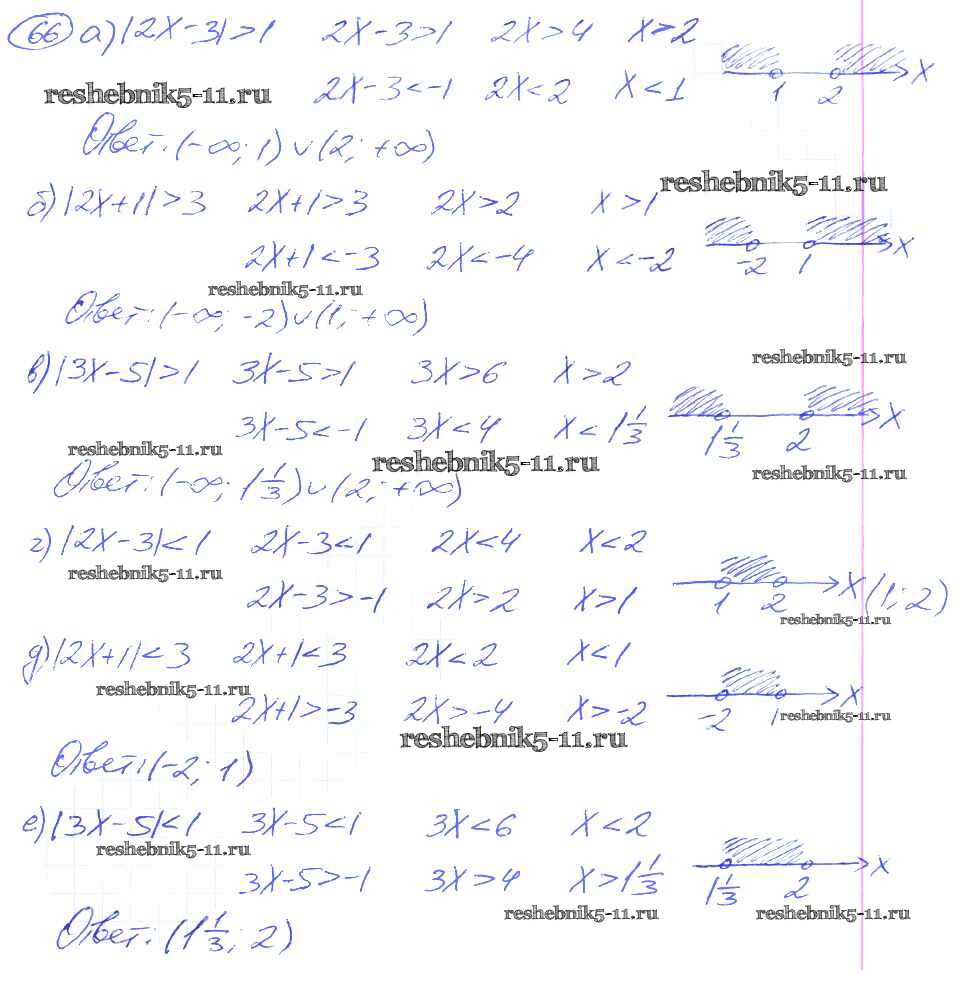 66 а) |2x-3|>1 2x-3>1 2x>4 x>2
reshebnik5-11.ru 2x-3<-1 2x<2 x<1 1 2 x
Ответ: (-∞; 1)∪(2; +∞)
reshebnik5-11.ru
б) |2x+1|>3 2x+1>3 2x>2 x>1
2x+1<-3 2x<-4 x<-2 -2 1 x
reshebnik5-11.ru
Ответ: (-∞; -2)∪(1; +∞)
reshebnik5-11.ru
в) |3x-5|>1 3x-5>1 3x>6 x>2
3x-5<-1 3x<4 x<1 1/3 1 1/3 2 x
reshebnik5-11.ru reshebnik5-11.ru reshebnik5-11.ru
Ответ: (-∞; 1 1/3)∪(2; +∞)
г) |2x-3|<1 2x-3<1 2x<4 x<2
reshebnik5-11.ru
2x-3>-1 2x>2 x>1 1 2 x (1; 2)
reshebnik5-11.ru
д) |2x+1|<3 2x+1<3 2x<2 x<1
reshebnik5-11.ru
2x+1>-3 2x>-4 x>-2 -2 1 x
reshebnik5-11.ru
reshebnik5-11.ru
Ответ: (-2; 1)
е) |3x-5|<1 3x-5<1 3x<6 x<2
reshebnik5-11.ru
3x-5>-1 3x>4 x>1 1/3 1 1/3 2 x
reshebnik5-11.ru reshebnik5-11.ru
Ответ: (1 1/3; 2)